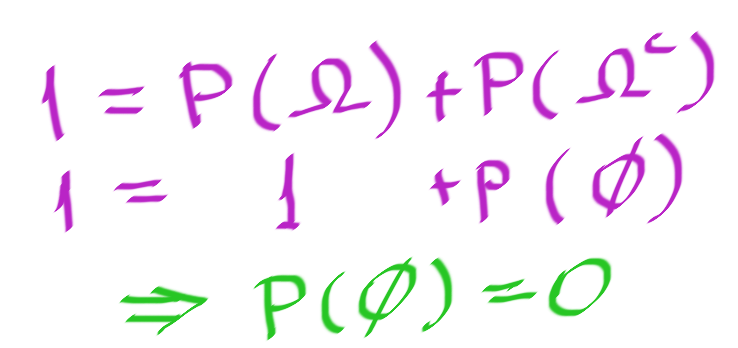 1 = P(Ω) + P(Ωᶜ)
1 = 1 + P(∅)
⇒ P(∅) = 0